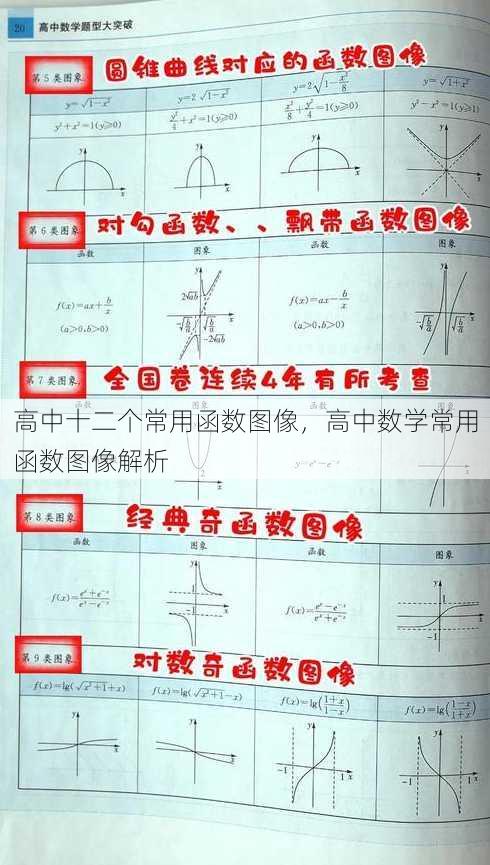 20 高中数学题型大突破
第5类图象 圆锥曲线对应的函数图像
y=√(1-x²) y=2√(1-x²) y=2√(1-x²/8) y=√(1+x²)
y²+x²=1(y≥0) y²/4+x²=1(y≥0) x²/8+y²/4=1(y≥0) y²-x²=1(y≥1)
第6类图象 对勾函数、、飘带函数图像
函数 图象 函数 图象
f(x)=ax+b/x f(x)=ax-b/x
(a>0,b>0) (a>0,b>0)
2√ab
-√(b/a) √(b/a) -√(b/a) √(b/a)
-2√ab
第7类图象 全国卷连续4年有所考查
高中十二个常用函数图像，高中数学常用
函数图像解析
第8类图象 经典奇函数图像
函数 图象 函数 图象
f(x)=(eˣ+e⁻ˣ)/(eˣ-e⁻ˣ) f(x)=(eˣ-e⁻ˣ)/(eˣ+e⁻ˣ)
第9类图象 对数奇函数图像
f(x)=lg(√(x²+1)+x) f(x)=lg(√(x²+1)-x) f(x)=lg((1+x)/(1-x)) f(x)=lg((1-x)/(1+x))
-1 1 -1 1